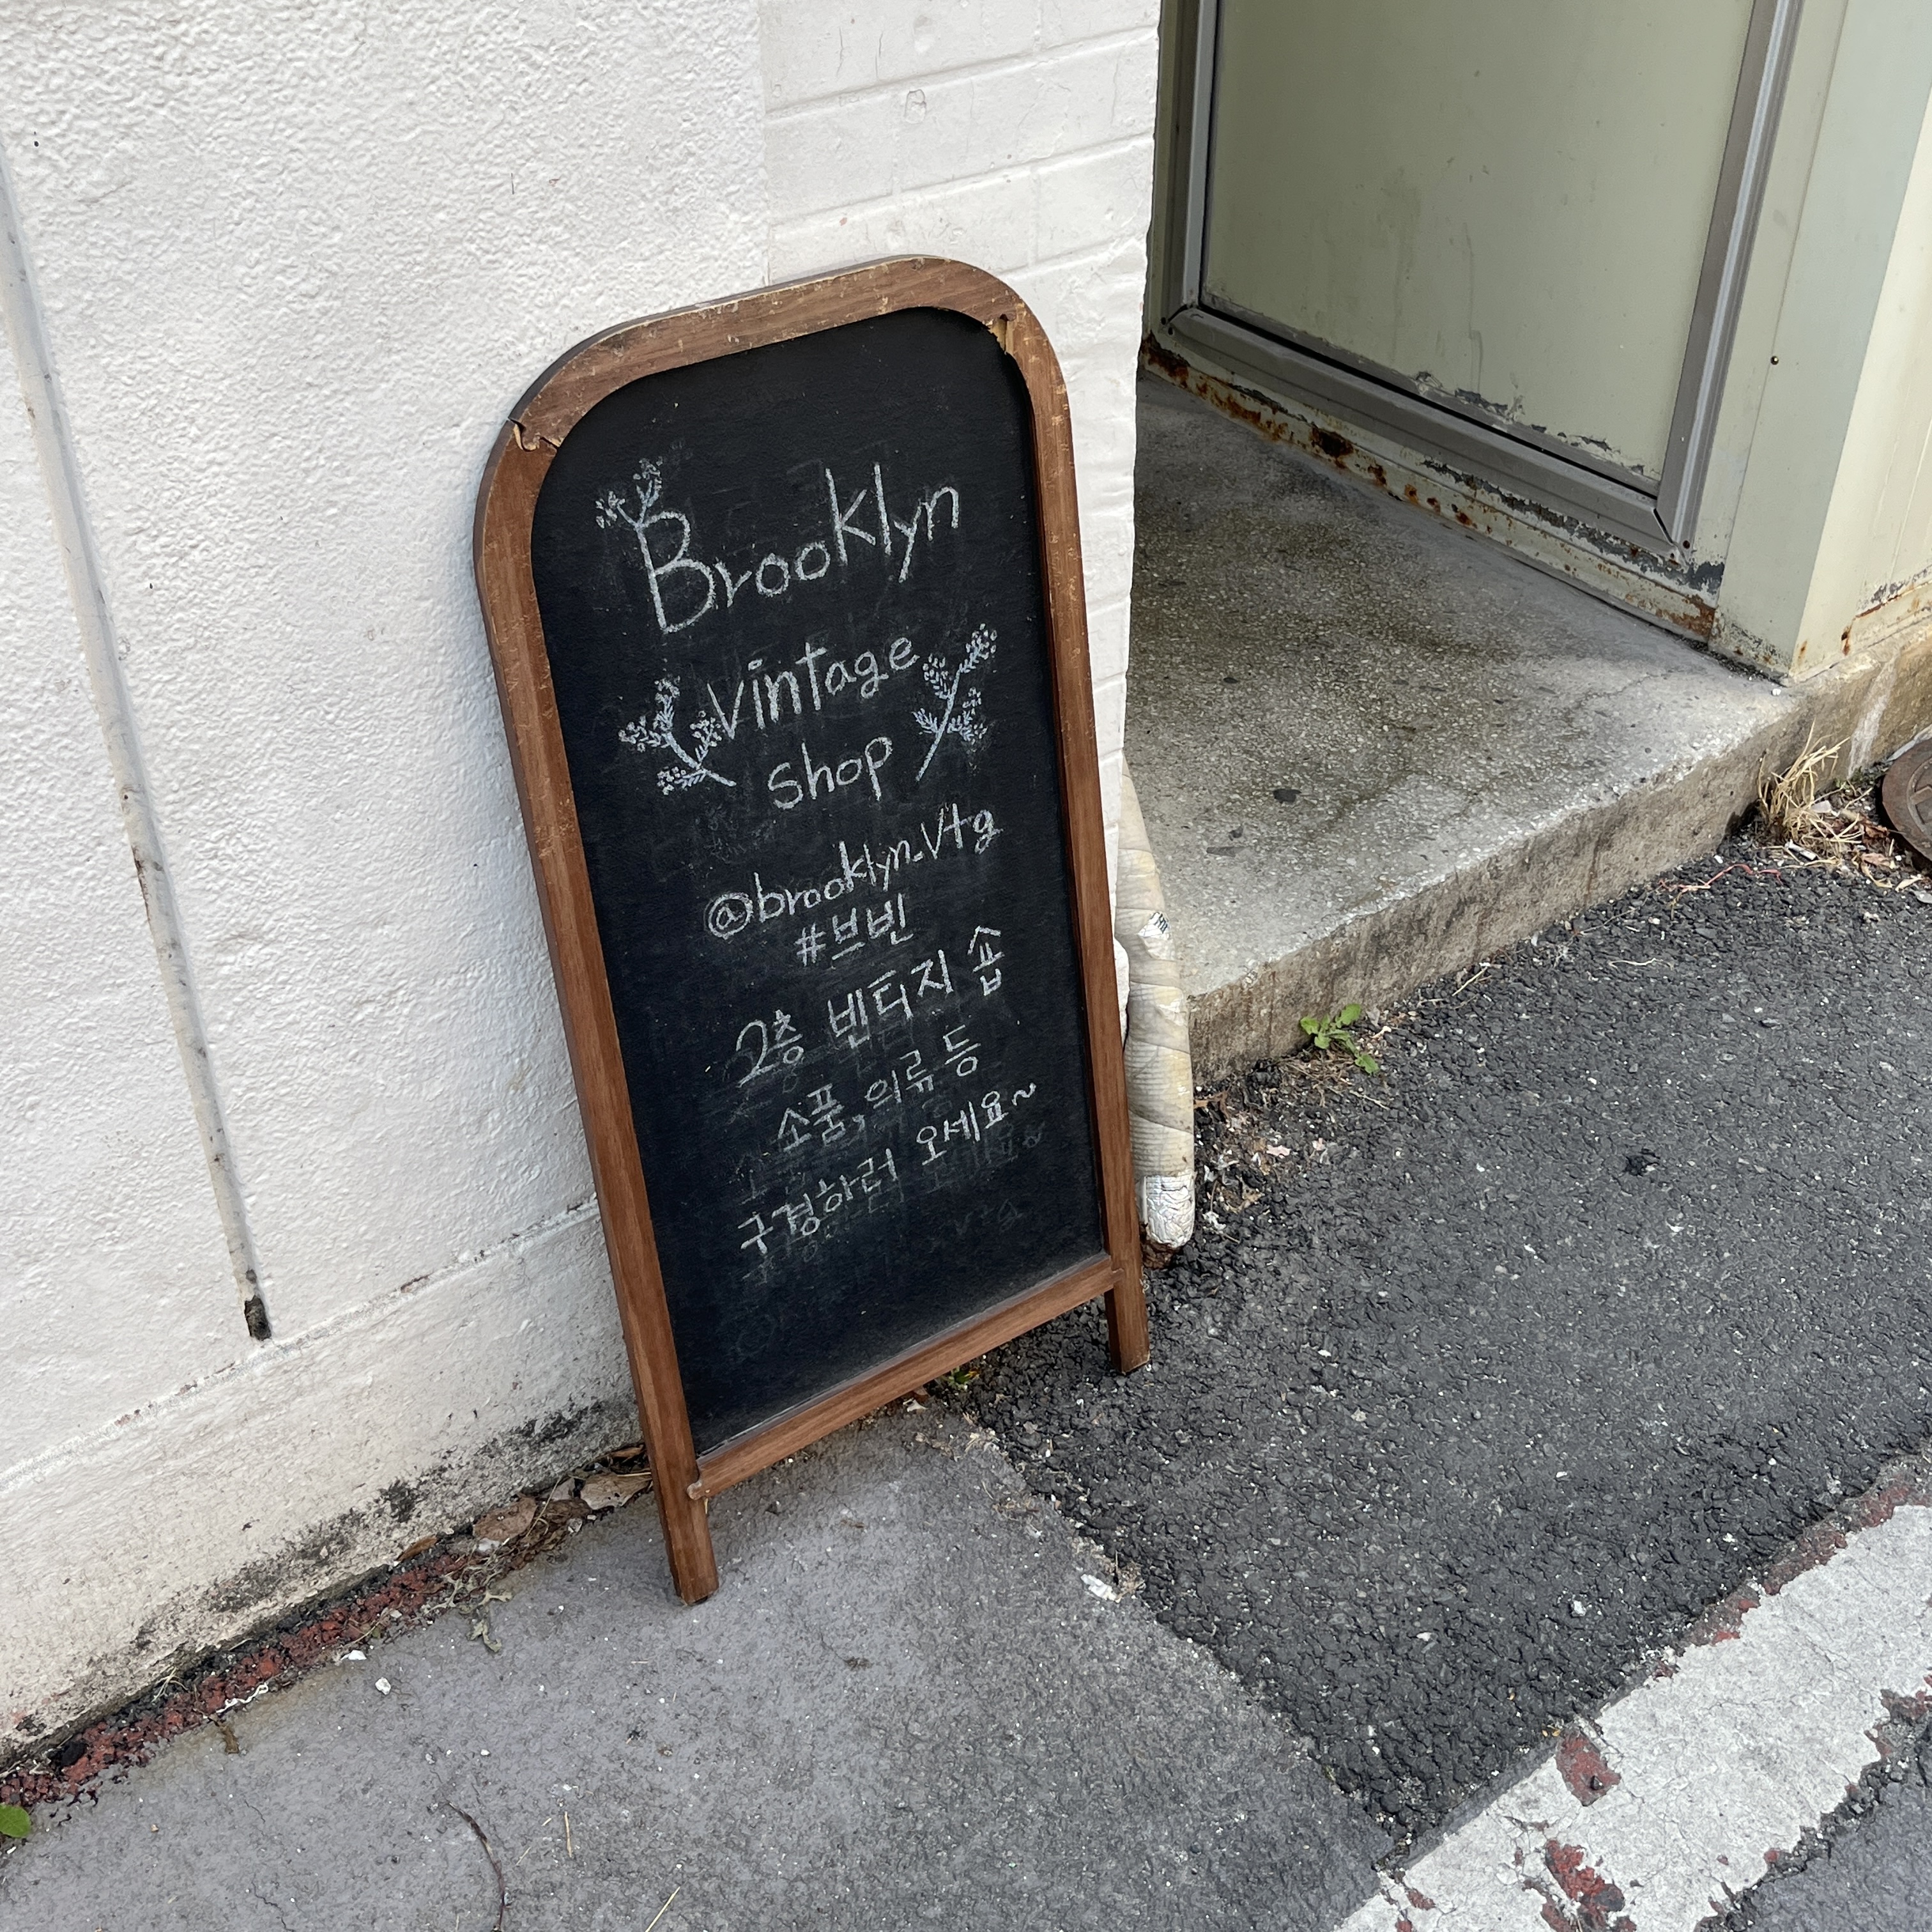 Brooklyn
vintage
shop
@brooklyn_vtg
#브빈
2층 빈티지 숍
소품, 의류 등
구경하러 오세요~